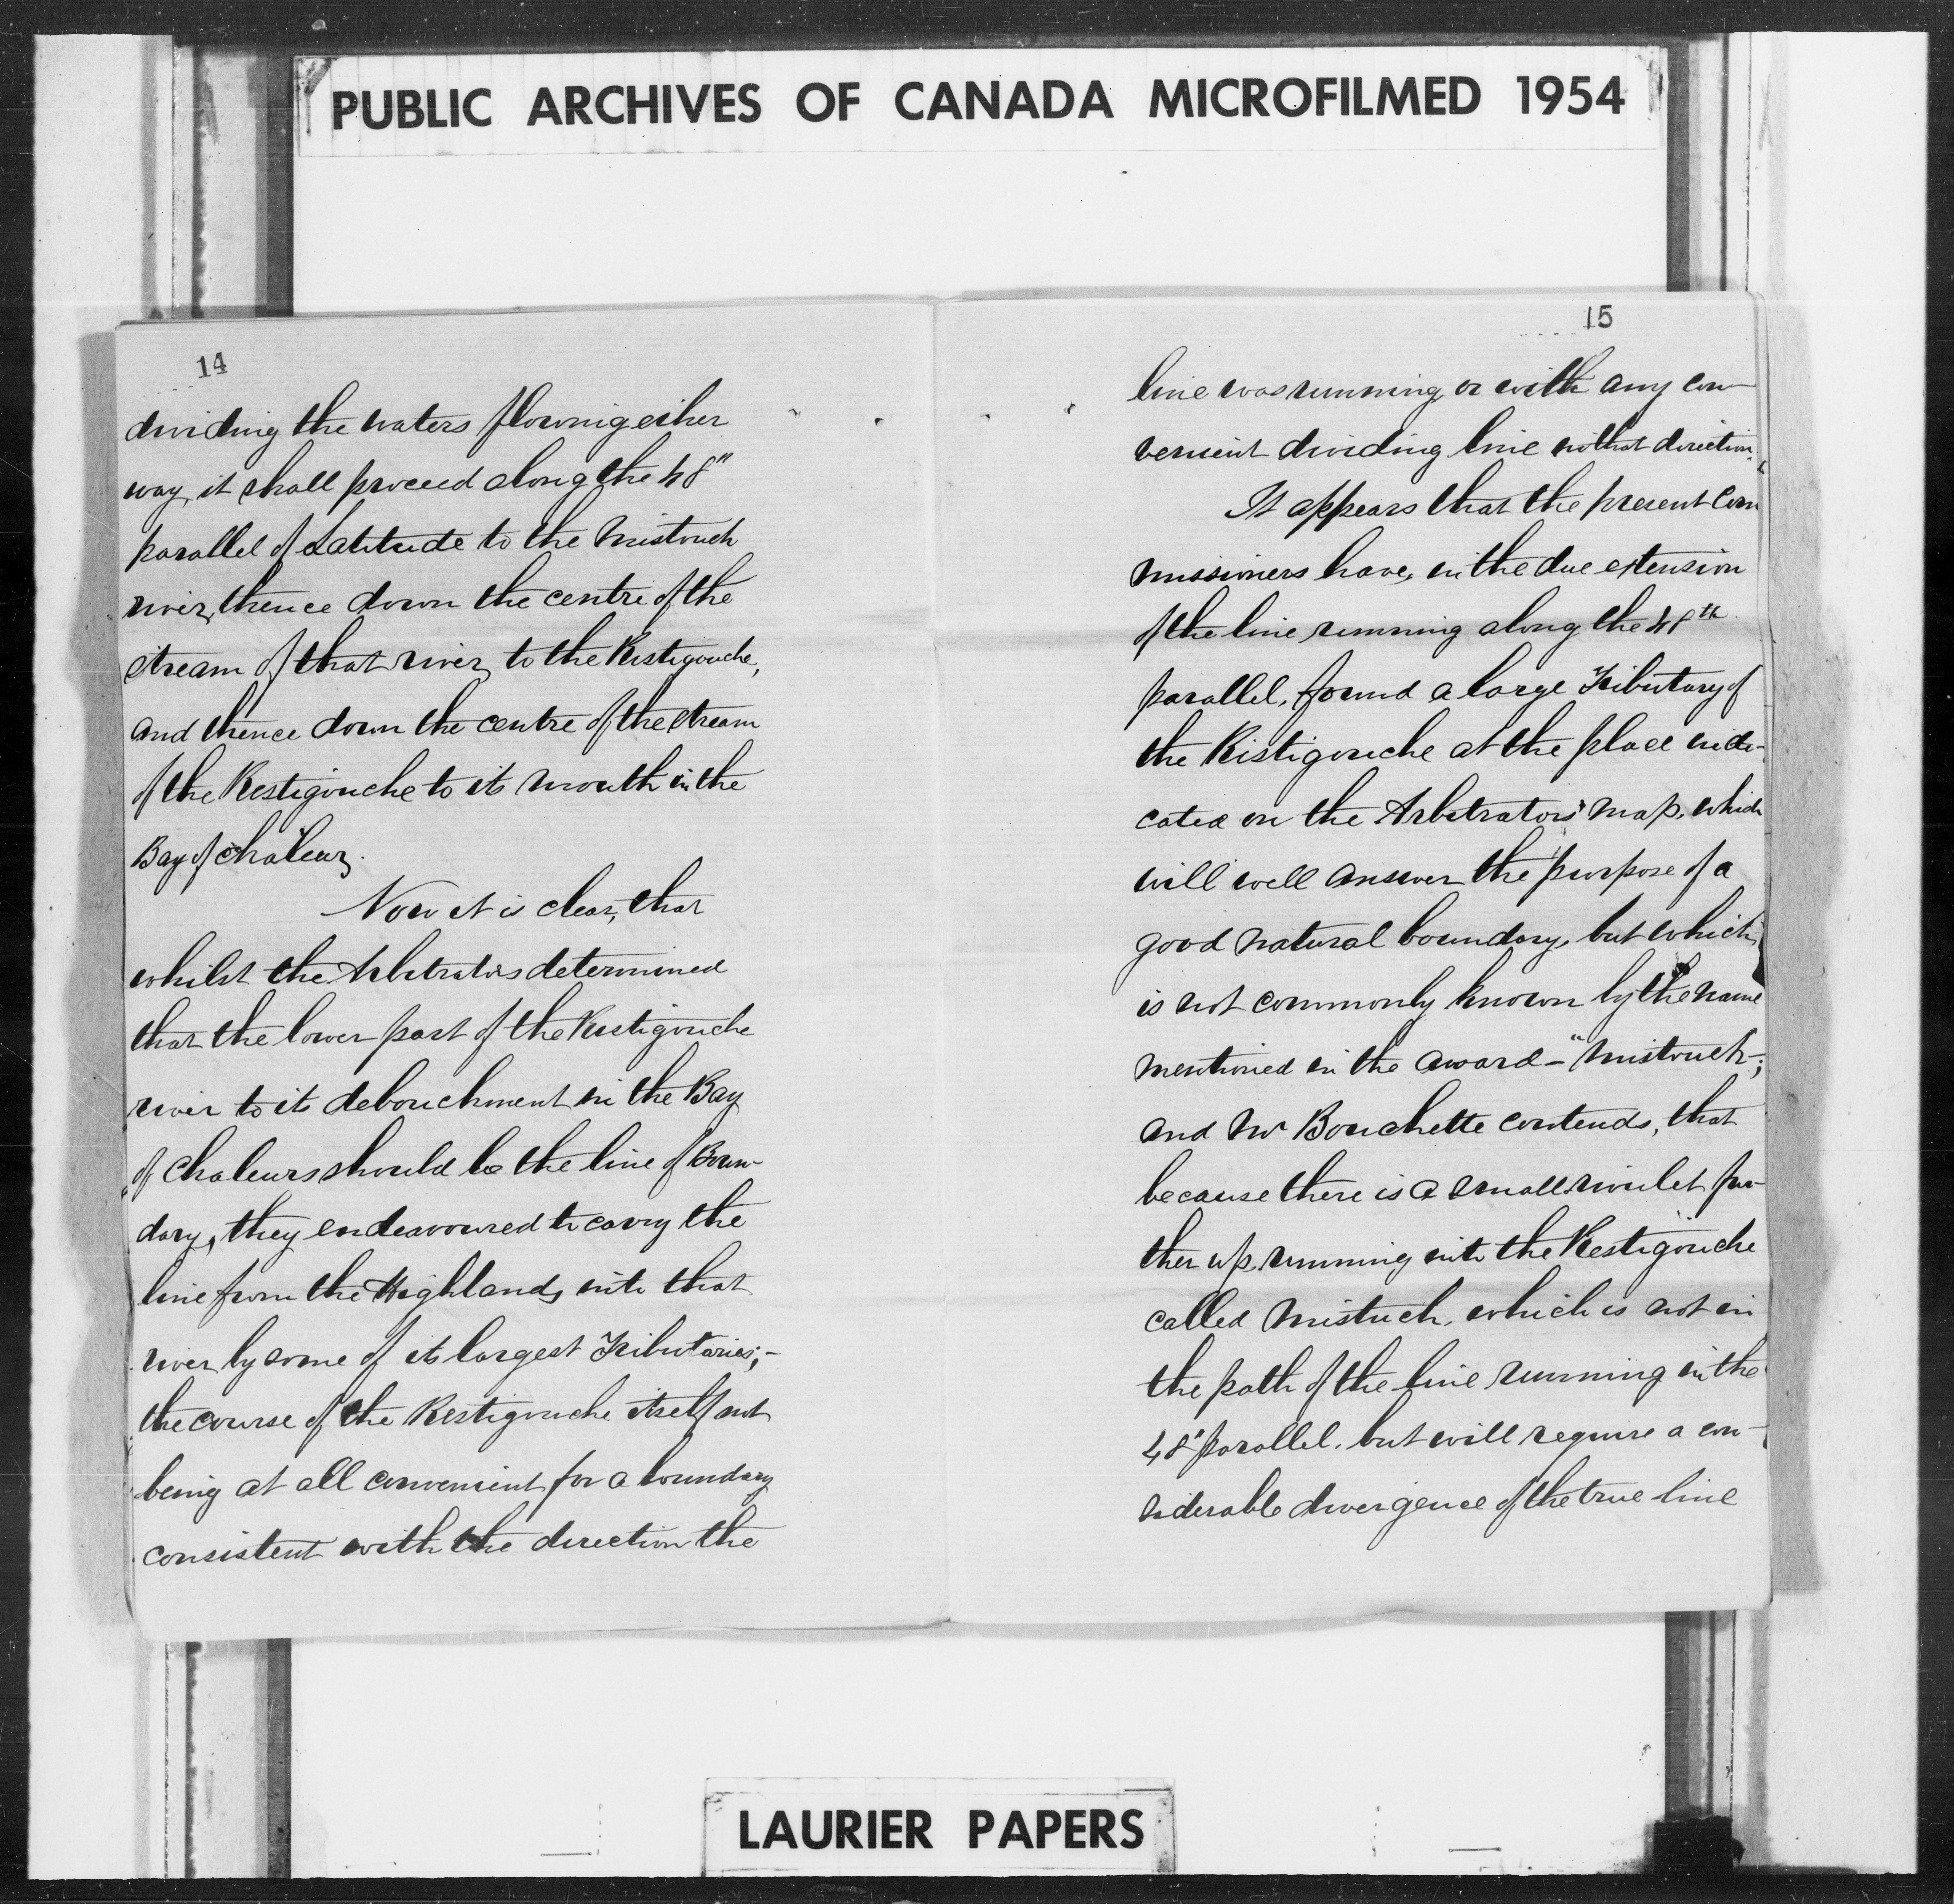 PUBLIC ARCHIVES OF CANADA MICROFILMED 1954
14
dividing the waters flowing either
way, it shall proceed along the 48"
parallel of Latitude to the Mistouch
river, thence down the centre of the
stream of that river, to the Restigouche,
and thence down the centre of the stream
of the Restigouche to its mouth in the
Bay of Chaleur.
Now it is clear, that
whilst the Arbitrators determined
that the lower part of the Restigouche
river to its debouchment in the Bay
of Chaleurs should be the line of Boun-
dary, they endeavoured to carry the
line from the Highlands into that
river by some of its largest Tributaries;-
the course of the Restigouche itself not
being at all convenient for a boundary
consistent with the direction the
15
line was running, or with any con-
venient dividing line in that direction.
It appears that the present Com
missioners have, in the due extension
of the line running along the 48th
parallel, found a large Tributary of
the Ristigouche at the place indi-
cated on the Arbitrators' map, which
will well answer the purpose of a
good natural boundary, but which
is not commonly known by the name
mentioned in the award - "Mistouch-;
and Mr Bouchette contends, that
because there is a small rivulet fur-
ther up, running into the Restigouche
called Mistuch, which is not in
the path of the line running in the
48" parallel, but will require a con-
siderable divergence of the true line
LAURIER PAPERS